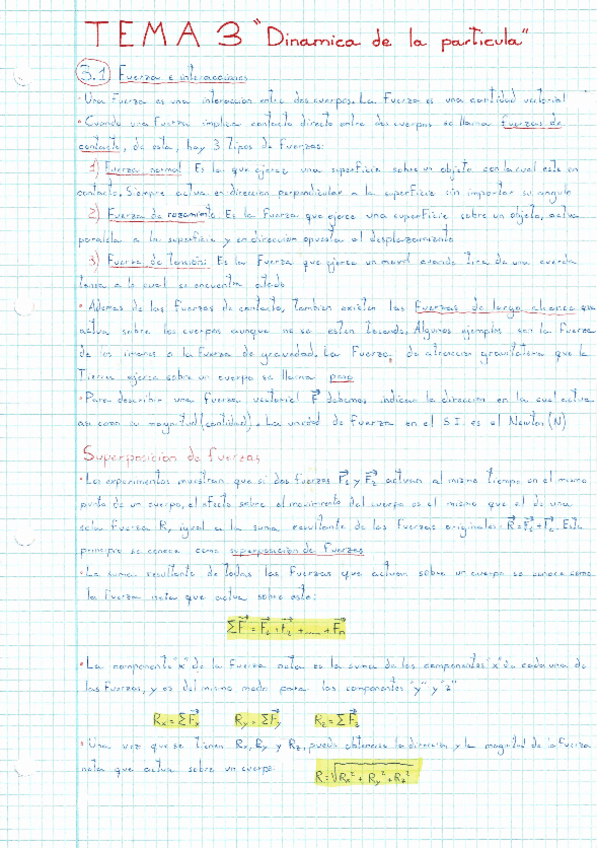 TEMA 3 "Dinamica de la particula"
3.1) Fuerza e interacciones
• Una Fuerza es una interacion entre dos cuerpos. La Fuerza es una cantidad vectorial
• Cuando una Fuerza implica contacto directo entre dos cuerpos se llama Fuerzas de
contacto, de esta, hay 3 tipos de Fuerzas:
1) Fuerza normal: Es la que ejerce una superficie sobre un objeto con la cual esta en
contacto. Siempre actua en direccion perpendicular a la superficie sin importar su angulo
2) Fuerza de rozamiento: Es la Fuerza que ejerce una superficie sobre un objeto, actua
paralela a la superficie y en direccion opuesta al desplazamiento
3) Fuerza de tension: Es la Fuerza que ejerce un movil cuando tira de una cuerda
tensa a la cual se encuentra atado
• Ademas de las fuerzas de contacto, tambien existen las Fuerzas de largo alcance que
actua sobre los cuerpos aunque no se esten tocando. Algunos ejemplos son la Fuerza
de los imanes o la fuerza de gravedad. La Fuerza de atraccion gravitatoria que la
Tierra ejerce sobre un cuerpo se llama peso
• Para describir una fuerza vectorial F⃗ debemos indicar la direccion en la cual actua
asi como su magnitud (cantidad). La unidad de Fuerza en el S.I. es el Newton (N)
Superposicion de fuerzas
• Los experimentos muestran que si dos fuerzas F⃗₁ y F⃗₂ actuan al mismo tiempo en el mismo
punto de un cuerpo, el efecto sobre el movimiento del cuerpo es el mismo que el de una
sola Fuerza R, igual a la suma resultante de las Fuerzas originales: R⃗=F⃗₁+F⃗₂. Este
principio se conoce como superposicion de Fuerzas
• La suma resultante de todas las Fuerzas que actuan sobre un cuerpo se conoce como
la Fuerza neta que actua sobre este:
ΣF⃗ = F⃗₁ + F⃗₂ + ..... + F⃗n
• La componente "x" de la Fuerza neta es la suma de los componentes "x" de cada una de
las Fuerzas, y es del mismo modo para los componentes "y" y "z"
Rx = ΣF⃗x Ry = ΣF⃗y Rz = ΣF⃗z
• Una vez que se tienen Rx, Ry y Rz, puede obtenerse la direccion y la magnitud de la Fuerza
neta que actua sobre un cuerpo. R = √Rx² + Ry² + Rz²